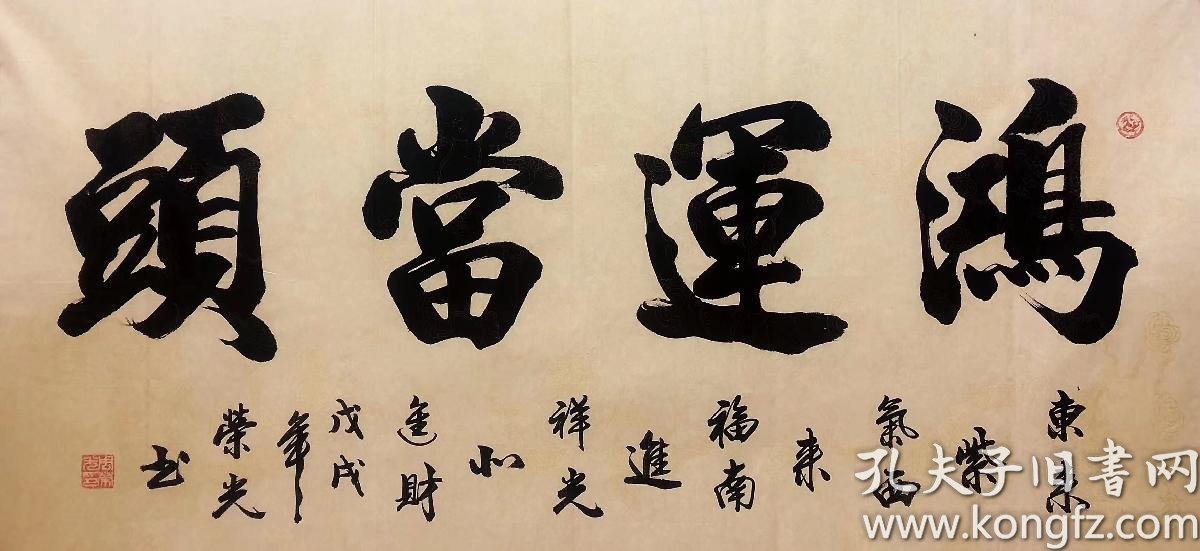 鴻運當頭
東来
紫
氣西
来
福南
進
祥光
北
進財
戊戌
年
榮光
书
孔夫子旧書网
www.kongfz.com